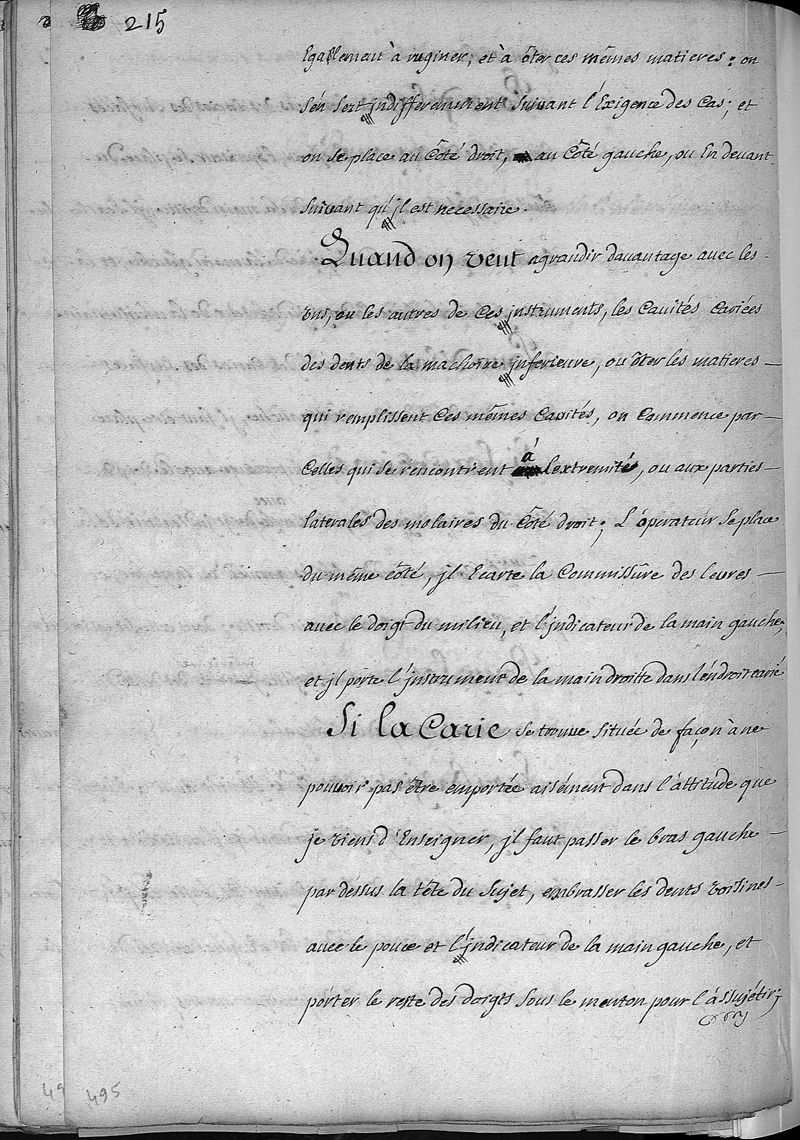 215
Egallement à ruginer, et à ôter ces mêmes matieres: on
s'en sert jndifferemment suivant l'Exigence des Cas, et
on se place au Côté droit, au Côté gauche, ou En devant
suivant qu'jl est necessaire.
Quand on veut agrandir davantage avec les
uns, ou les autres de ces jnstruments, les Cavités Cariées
des dents de la machoire jnferieure, ou ôter les matieres
qui remplissent Ces mêmes Cavités, on Commence par
Celles qui se rencontrent à l'extremité, ou aux parties
laterales des molaires du Côté droit; L'óperateur se place
du même côté, jl Ecarte la Commissûre des levres
avec le doigt du milieu, et l'jndicateur de la main gauche,
et jl porte l'jnstrument de la main droitte dans l'éndroit carié
Si la Carie se trouve située de façon à ne
pouvoir pas être emportée aisément dans l'áttitude que
je viens d'Enseigner, jl faut passer le bras gauche
par dessus la tête du Sujet, embrasser les dents voisines
avec le pouce et l'jndicateur de la main gauche, et
porter le reste des doigts sous le menton pour l'ássujétir;
495